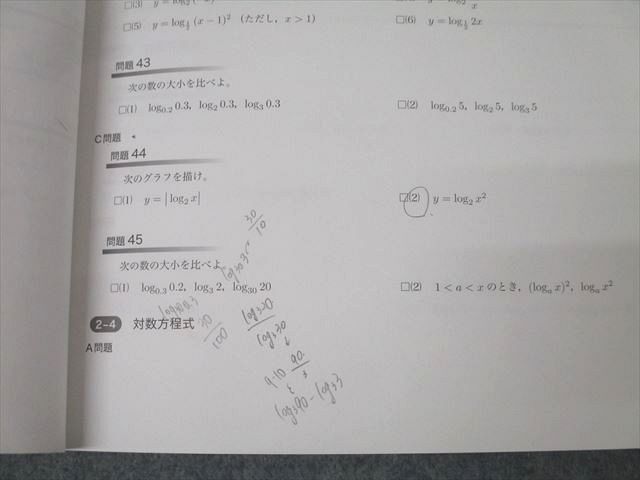 □(5) y = log_{1/2}(x − 1)² (ただし, x > 1)
□(6) y = log_{1/2} 2x
問題 43
次の数の大小を比べよ。
□(1) log_{0.2} 0.3, log_2 0.3, log_3 0.3
□(2) log_{0.2} 5, log_2 5, log_3 5
C問題
問題 44
次のグラフを描け。
□(1) y = |log_2 x|
□(2) y = log_2 x²
問題 45
次の数の大小を比べよ。
□(1) log_{0.3} 0.2, log_3 2, log_{30} 20
□(2) 1 < a < x のとき, (log_a x)², log_a x²
2-4 対数方程式
A問題
30/10
30/100
log_3 20
log_3 30
9·10 90
3
log_3 90 − log_3 3